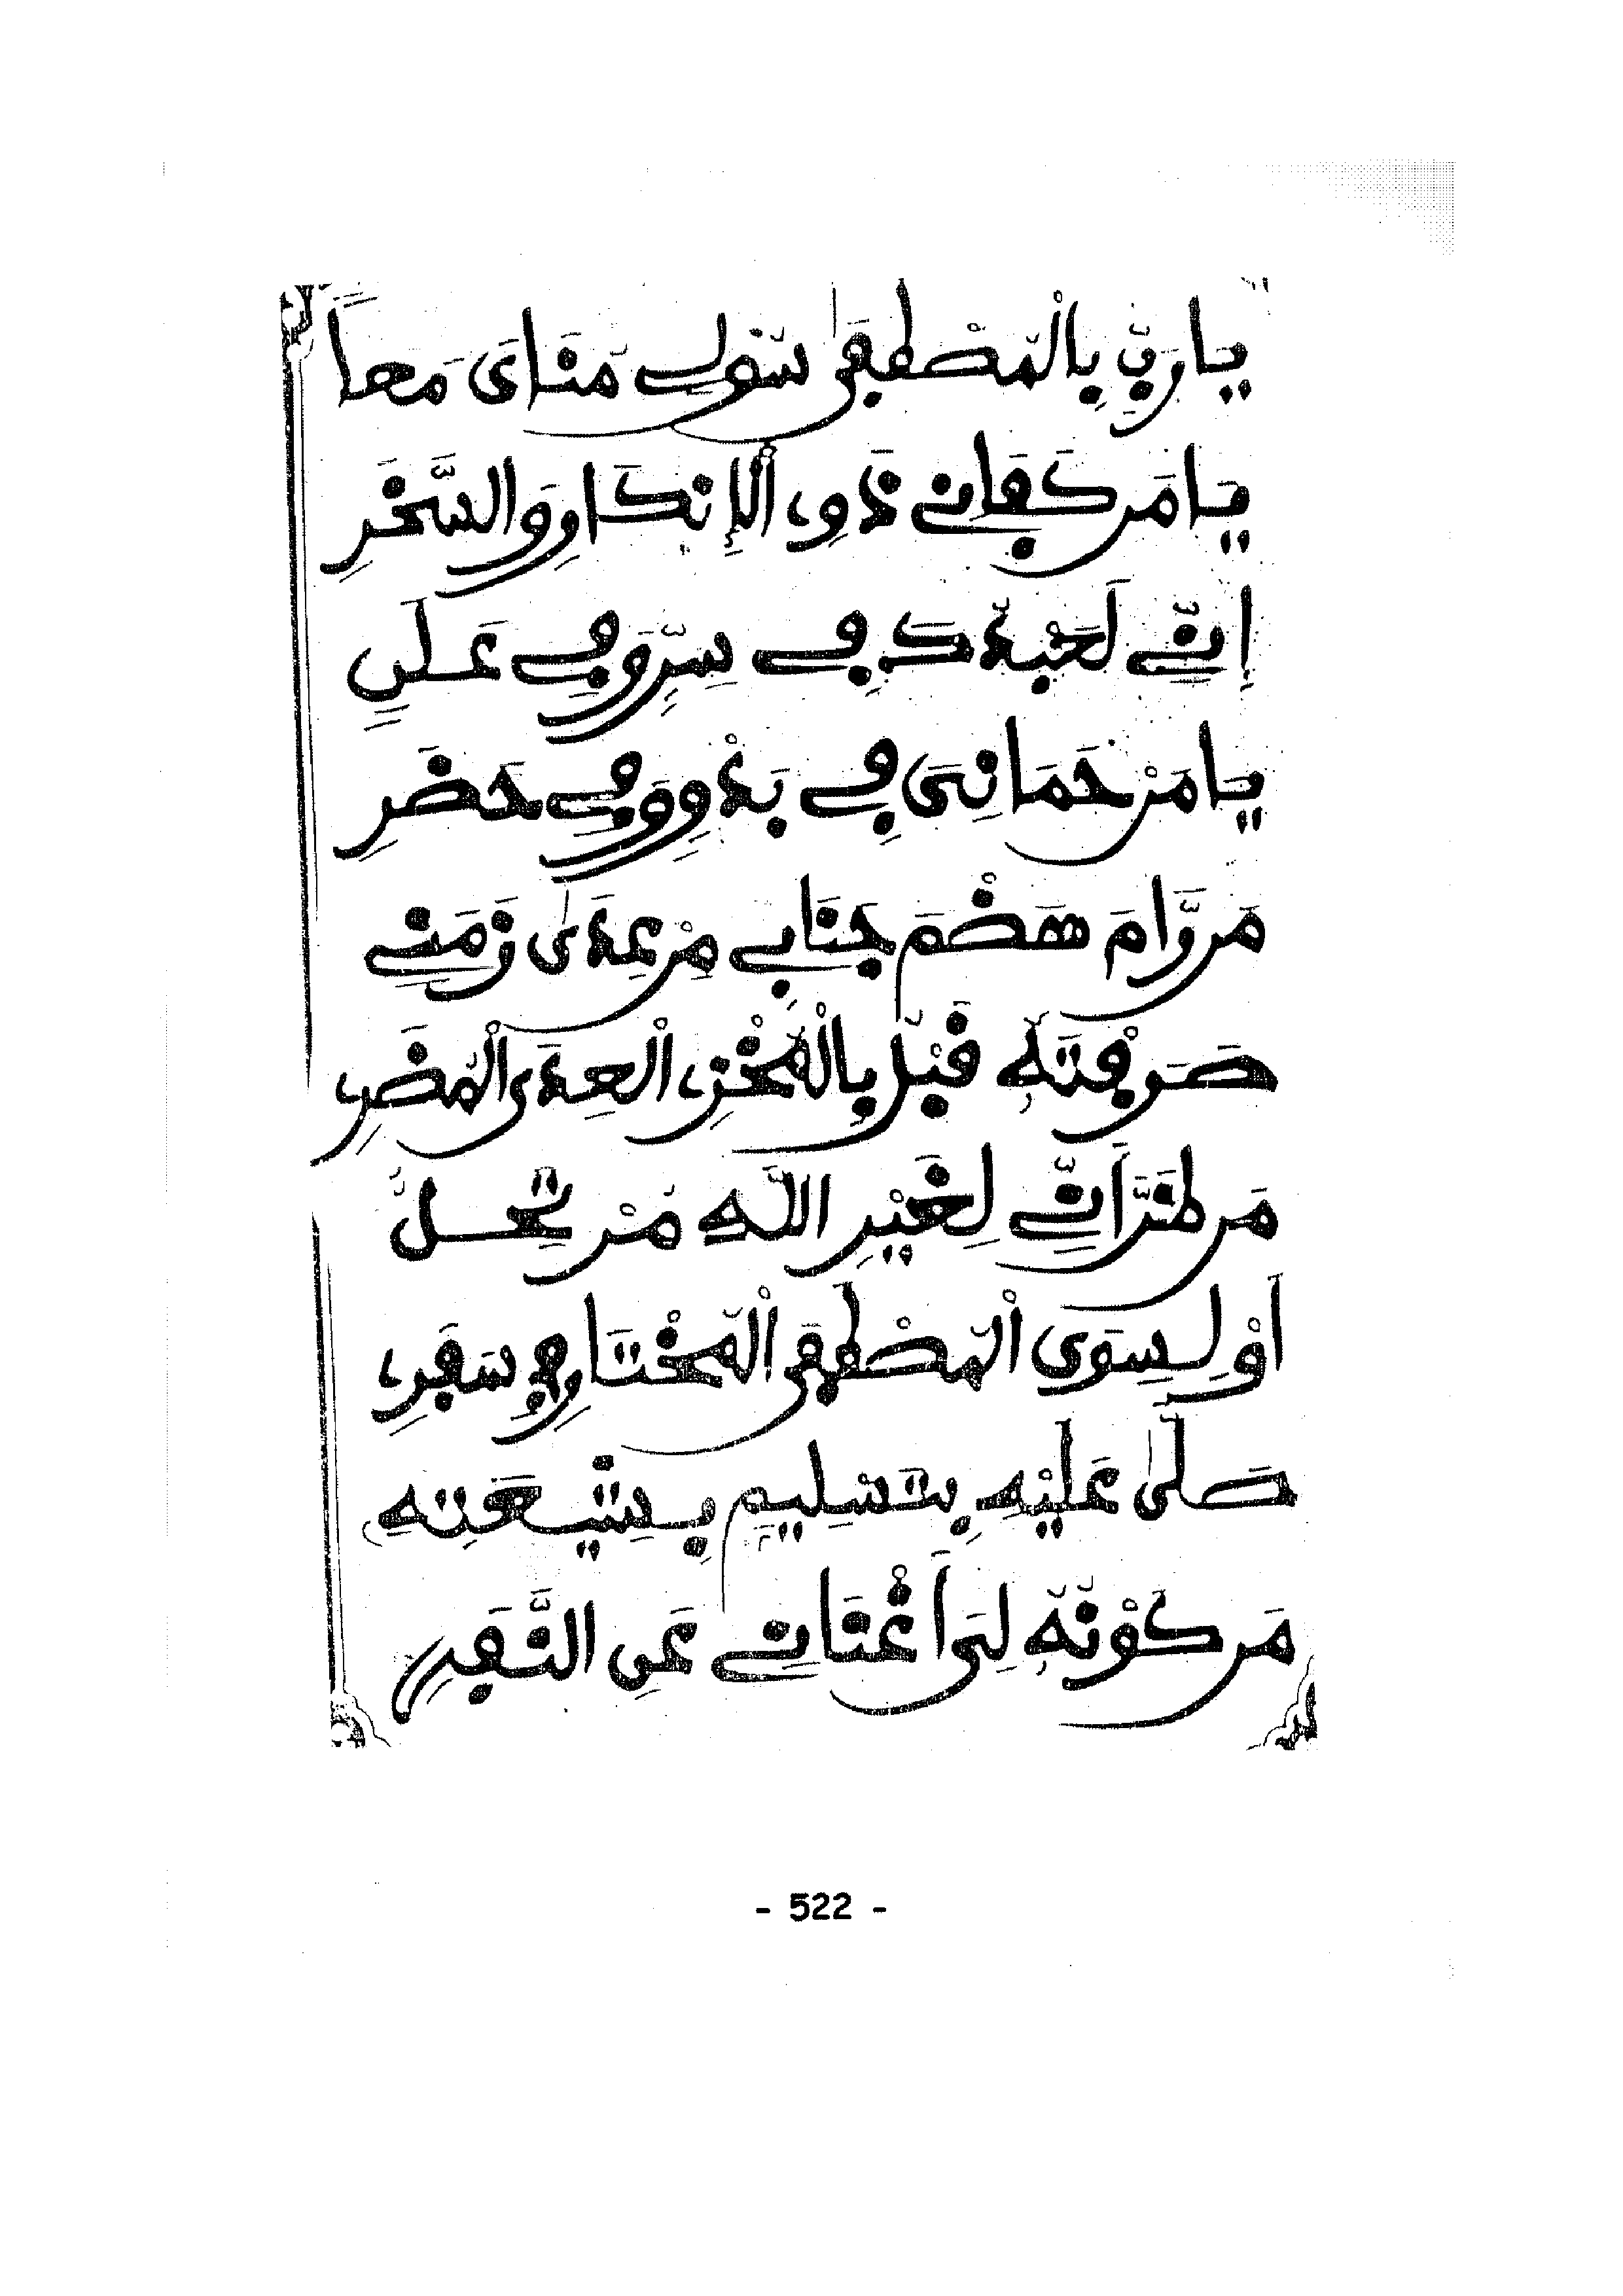 يَا رَبِّ بِالْمُصْطَفَى سُقْ لِي مُنَايَ مَعًا
يَا مَن كَفَانِي ذَوِي الْإِنكَارِ وَالسُّخَرِ
إِنِّي لَعَبْدُكَ فِي سِرٍّ وَفِي عَلَنٍ
يَا مَنْ حَمَانِيَ فِي بَدْوٍ وَفِي حَضَرِ
مَن رَّامَ هَضْمَ جَنَابِي مِنْ عِدَى زَمَنِي
صَرَفْتَهُ قَبْلُ بِالْمُخْزِي الْعِدَى الْمُضَرِي
مَن ظَنَّ أَنِّي لِغَيْرِ اللَّهِ مُرْتَحِلٌ
أَوْ لِسِوَى الْمُصْطَفَى الْمُخْتَارِ فِي سَفَرِي
صَلَّى عَلَيْهِ بِتَسْلِيمٍ بِشِيعَتِهِ
مَن كَوْنُهُ لِيَ أَغْنَانِي عَنِ النَّفَرِ
- 522 -